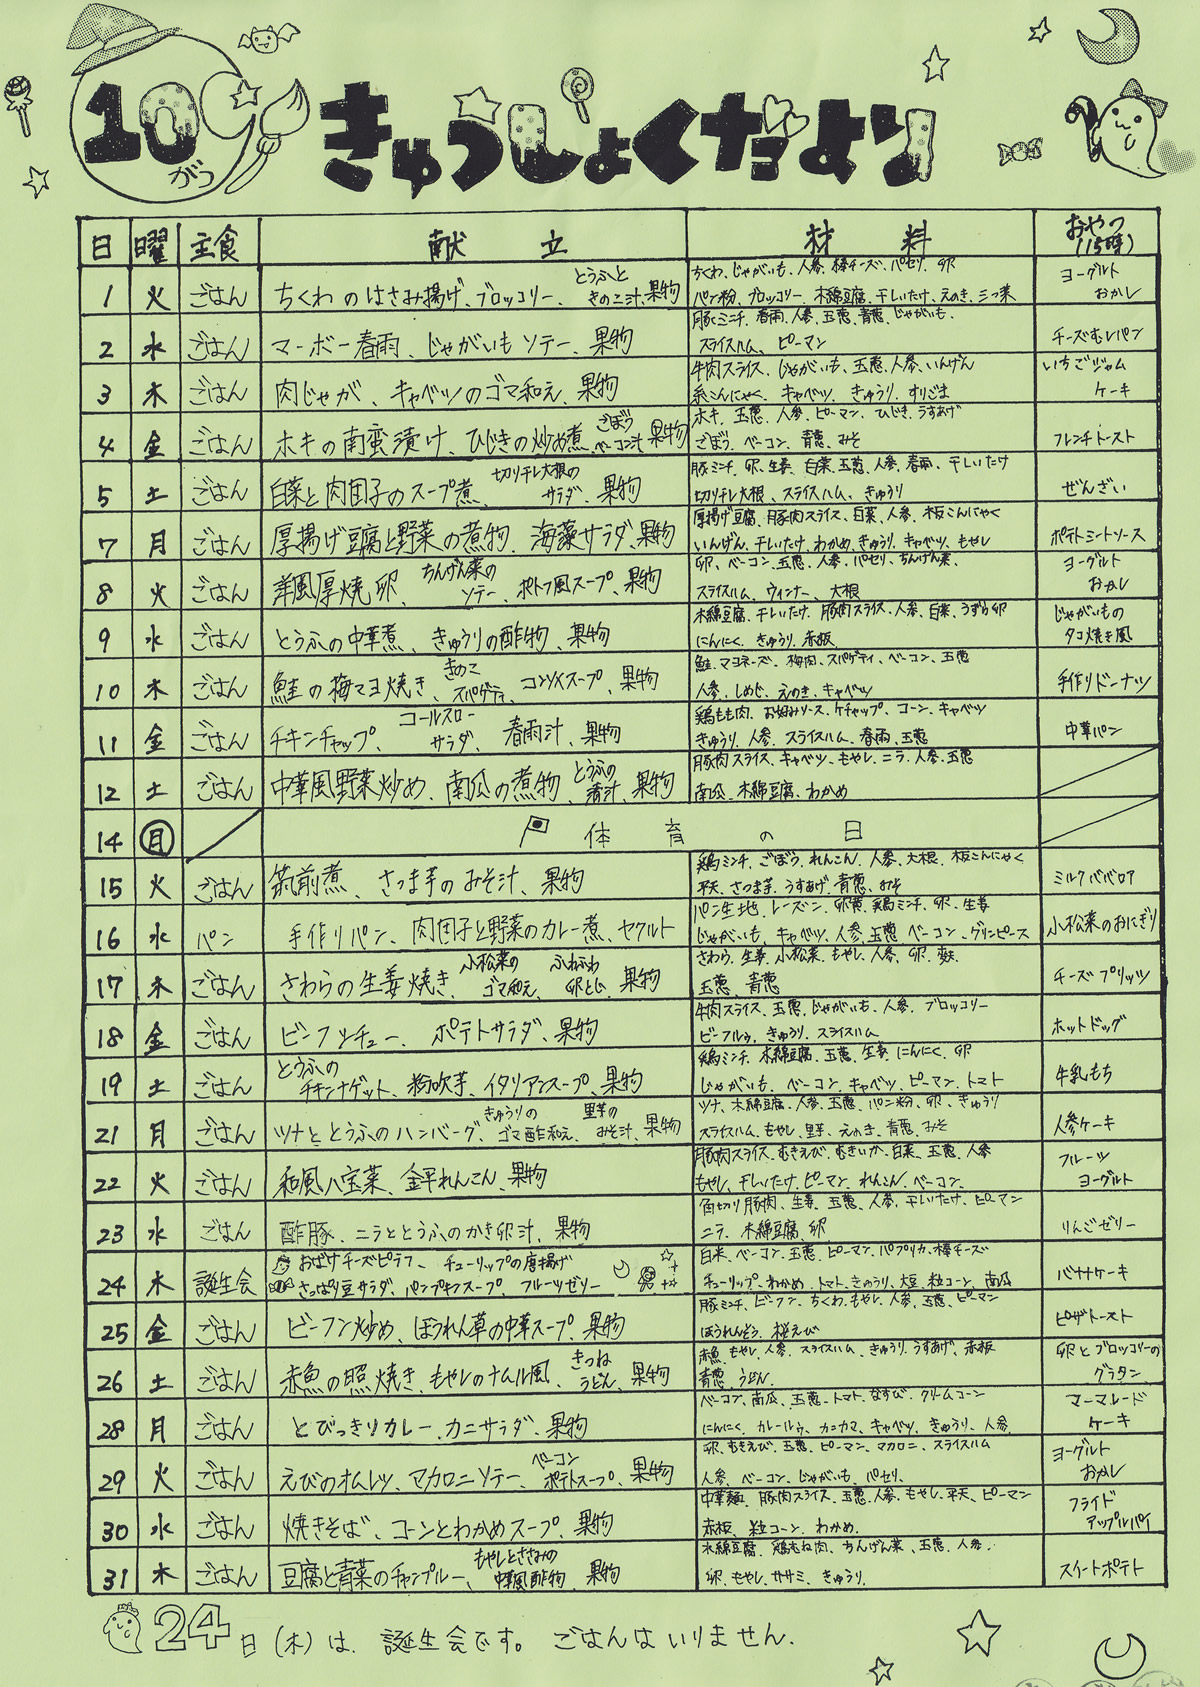 10がつ きゅうしょくだより
日 曜 主食 献立 材料 おやつ(15時)
1 火 ごはん ちくわのはさみ揚げ、ブロッコリー、とうふときのこ汁、果物 ちくわ、じゃがいも、人参、棒チーズ、パセリ、卵 ヨーグルト
パン粉、ブロッコリー、木綿豆腐、干しいたけ、えのき、三つ葉 おかし
2 水 ごはん マーボー春雨、じゃがいもソテー、果物 豚ミンチ、春雨、人参、玉葱、青葱、じゃがいも、
スライスハム、ピーマン チーズむしパン
3 木 ごはん 肉じゃが、キャベツのゴマ和え、果物 牛肉スライス、じゃがいも、玉葱、人参、いんげん いちごジャム
糸こんにゃく、キャベツ、きゅうり、すりごま ケーキ
4 金 ごはん ホキの南蛮漬け、ひじきの炒め煮、ごぼうベーコン汁、果物 ホキ、玉葱、人参、ピーマン、ひじき、うすあげ
ごぼう、ベーコン、青葱、みそ フレンチトースト
5 土 ごはん 白菜と肉団子のスープ煮、切り干し大根のサラダ、果物 豚ミンチ、卵、生姜、白菜、玉葱、人参、春雨、干しいたけ
切り干し大根、スライスハム、きゅうり ぜんざい
7 月 ごはん 厚揚げ豆腐と野菜の煮物、海藻サラダ、果物 厚揚げ豆腐、豚肉スライス、白菜、人参、板こんにゃく
いんげん、干しいたけ、わかめ、きゅうり、キャベツ、もやし ポテトミートソース
8 火 ごはん 洋風厚焼卵、ちんげん菜のソテー、ポトフ風スープ、果物 卵、ベーコン、玉葱、人参、パセリ、ちんげん菜、 ヨーグルト
スライスハム、ウィンナー、大根 おかし
9 水 ごはん とうふの中華煮、きゅうりの酢物、果物 木綿豆腐、干しいたけ、豚肉スライス、人参、白菜、うずら卵 じゃがいもの
にんにく、きゅうり、赤板 タコ焼き風
10 木 ごはん 鮭の梅マヨ焼き、きのこスパゲティ、コンソメスープ、果物 鮭、マヨネーズ、梅肉、スパゲティ、ベーコン、玉葱
人参、しめじ、えのき、キャベツ 手作りドーナツ
11 金 ごはん チキンチャップ、コールスローサラダ、春雨汁、果物 鶏もも肉、お好みソース、ケチャップ、コーン、キャベツ
きゅうり、人参、スライスハム、春雨、玉葱 中華パン
12 土 ごはん 中華風野菜炒め、南瓜の煮物、とうふの清汁、果物 豚肉スライス、キャベツ、もやし、ニラ、人参、玉葱
南瓜、木綿豆腐、わかめ
14 月 体育の日
15 火 ごはん 筑前煮、さつま芋のみそ汁、果物 鶏ミンチ、ごぼう、れんこん、人参、大根、板こんにゃく
平天、さつま芋、うすあげ、青葱、みそ ミルクババロア
16 水 パン 手作りパン、肉団子と野菜のカレー煮、ヤクルト パン生地、レーズン、卵黄、鶏ミンチ、卵、生姜
じゃがいも、キャベツ、人参、玉葱、ベーコン、グリンピース 小松菜のおにぎり
17 木 ごはん さわらの生姜焼き、小松菜のゴマ和え、ふわふわ卵とじ、果物 さわら、生姜、小松菜、もやし、人参、卵、麩
玉葱、青葱 チーズプリッツ
18 金 ごはん ビーフシチュー、ポテトサラダ、果物 牛肉スライス、玉葱、じゃがいも、人参、ブロッコリー
ビーフルウ、きゅうり、スライスハム ホットドッグ
19 土 ごはん とうふのチキンナゲット、粉吹芋、イタリアンスープ、果物 鶏ミンチ、木綿豆腐、玉葱、生姜、にんにく、卵
じゃがいも、ベーコン、キャベツ、ピーマン、トマト 牛乳もち
21 月 ごはん ツナととうふのハンバーグ、きゅうりのゴマ酢和え、里芋のみそ汁、果物 ツナ、木綿豆腐、人参、玉葱、パン粉、卵、きゅうり
スライスハム、もやし、里芋、えのき、青葱、みそ 人参ケーキ
22 火 ごはん 和風八宝菜、金平れんこん、果物 豚肉スライス、むきえび、むきいか、白菜、玉葱、人参 フルーツ
もやし、干しいたけ、ピーマン、れんこん、ベーコン、 ヨーグルト
23 水 ごはん 酢豚、ニラととうふのかき卵汁、果物 角切り豚肉、生姜、玉葱、人参、干しいたけ、ピーマン
ニラ、木綿豆腐、卵 りんごゼリー
24 木 誕生会 おばけチーズピラフ、チューリップの唐揚げ 白米、ベーコン、玉葱、ピーマン、パプリカ、棒チーズ
さっぱり豆サラダ、パンプキンスープ、フルーツゼリー チューリップ、わかめ、トマト、きゅうり、大豆、粒コーン、南瓜 バナナケーキ
25 金 ごはん ビーフン炒め、ほうれん草の中華スープ、果物 豚ミンチ、ビーフン、ちくわ、もやし、人参、玉葱、ピーマン
ほうれんそう、桜えび ピザトースト
26 土 ごはん 赤魚の照焼き、もやしのナムル風、きつねうどん、果物 赤魚、もやし、人参、スライスハム、きゅうり、うすあげ、赤板 卵とブロッコリーの
青葱、うどん、 グラタン
28 月 ごはん とびっきりカレー、カニサラダ、果物 ベーコン、南瓜、玉葱、トマト、なすび、クリームコーン マーマレード
にんにく、カレールウ、カニカマ、キャベツ、きゅうり、人参、 ケーキ
29 火 ごはん えびのオムレツ、マカロニソテー、ベーコンポテトスープ、果物 卵、むきえび、玉葱、ピーマン、マカロニ、スライスハム ヨーグルト
人参、ベーコン、じゃがいも、パセリ、 おかし
30 水 ごはん 焼きそば、コーンとわかめスープ、果物 中華麺、豚肉スライス、玉葱、人参、もやし、平天、ピーマン フライド
赤板、粒コーン、わかめ、 アップルパイ
31 木 ごはん 豆腐と青菜のチャンプルー、もやしとささみの中華風酢物、果物 木綿豆腐、鶏もも肉、ちんげん菜、玉葱、人参、
卵、もやし、ササミ、きゅうり、 スイートポテト
24日(木)は、誕生会です。ごはんはいりません。